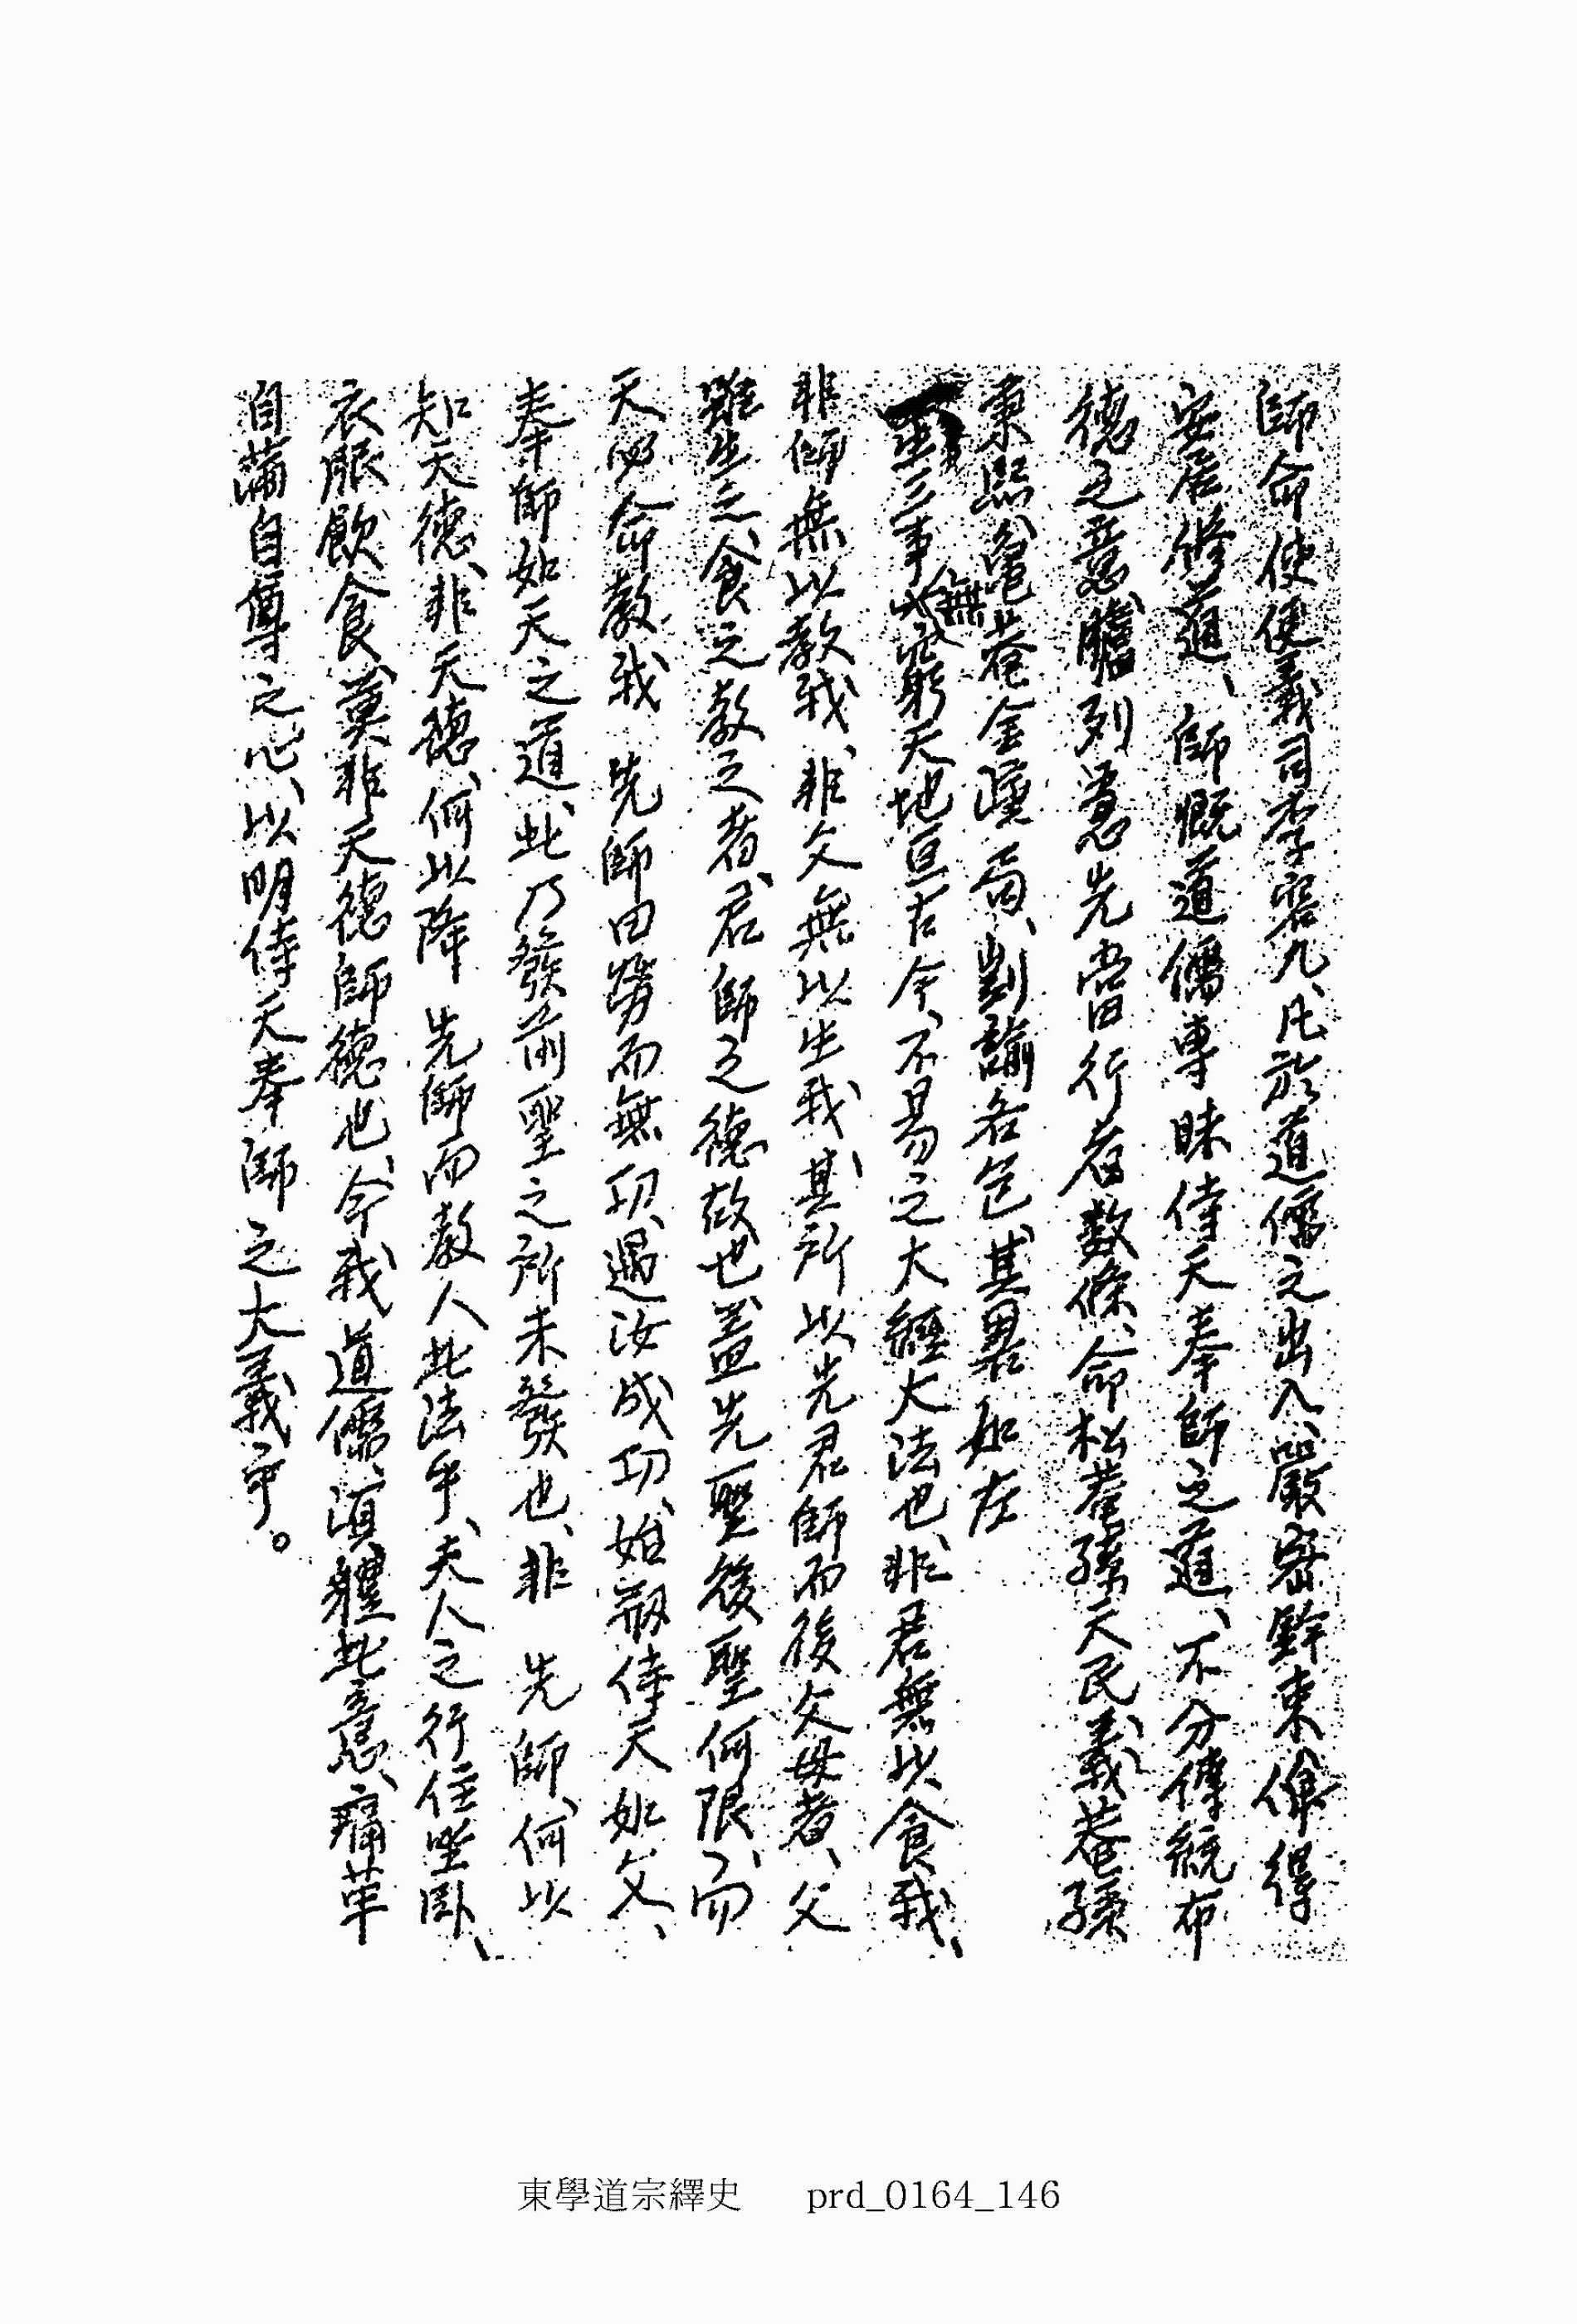 師命使便義司李容九、凡於道儒之出入、嚴密幹束、俾得
安居修道、師慨道儒專昧侍天奉師之道、不分傳統布
德之意、臚列當先當行者数條、命松菴孫天民義菴孫
秉熙龜菴金演局、剴諭各包、其畧如左
生三事無窮天地亘古今、不易之大經大法也、非君無以食我、
非師無以教我、非父無以生我、其所以先君師而後父母者、父
雖生之、食之教之者、君師之德故也、盖先聖後聖何限、而
天必命教我 先師曰勞而無功、遇汝成功、始刱侍天如父、
奉師如天之道、此乃發前聖之所未發也、非 先師、何以
知天德、非天德、何以降 先師而教人此法乎、夫人之行住坐臥、
衣服飮食、莫非天德師德也、今我道儒、須軆此意、痛革
自滿自尊之心、以明侍天奉師之大義乎。
東學道宗繹史 prd_0164_146